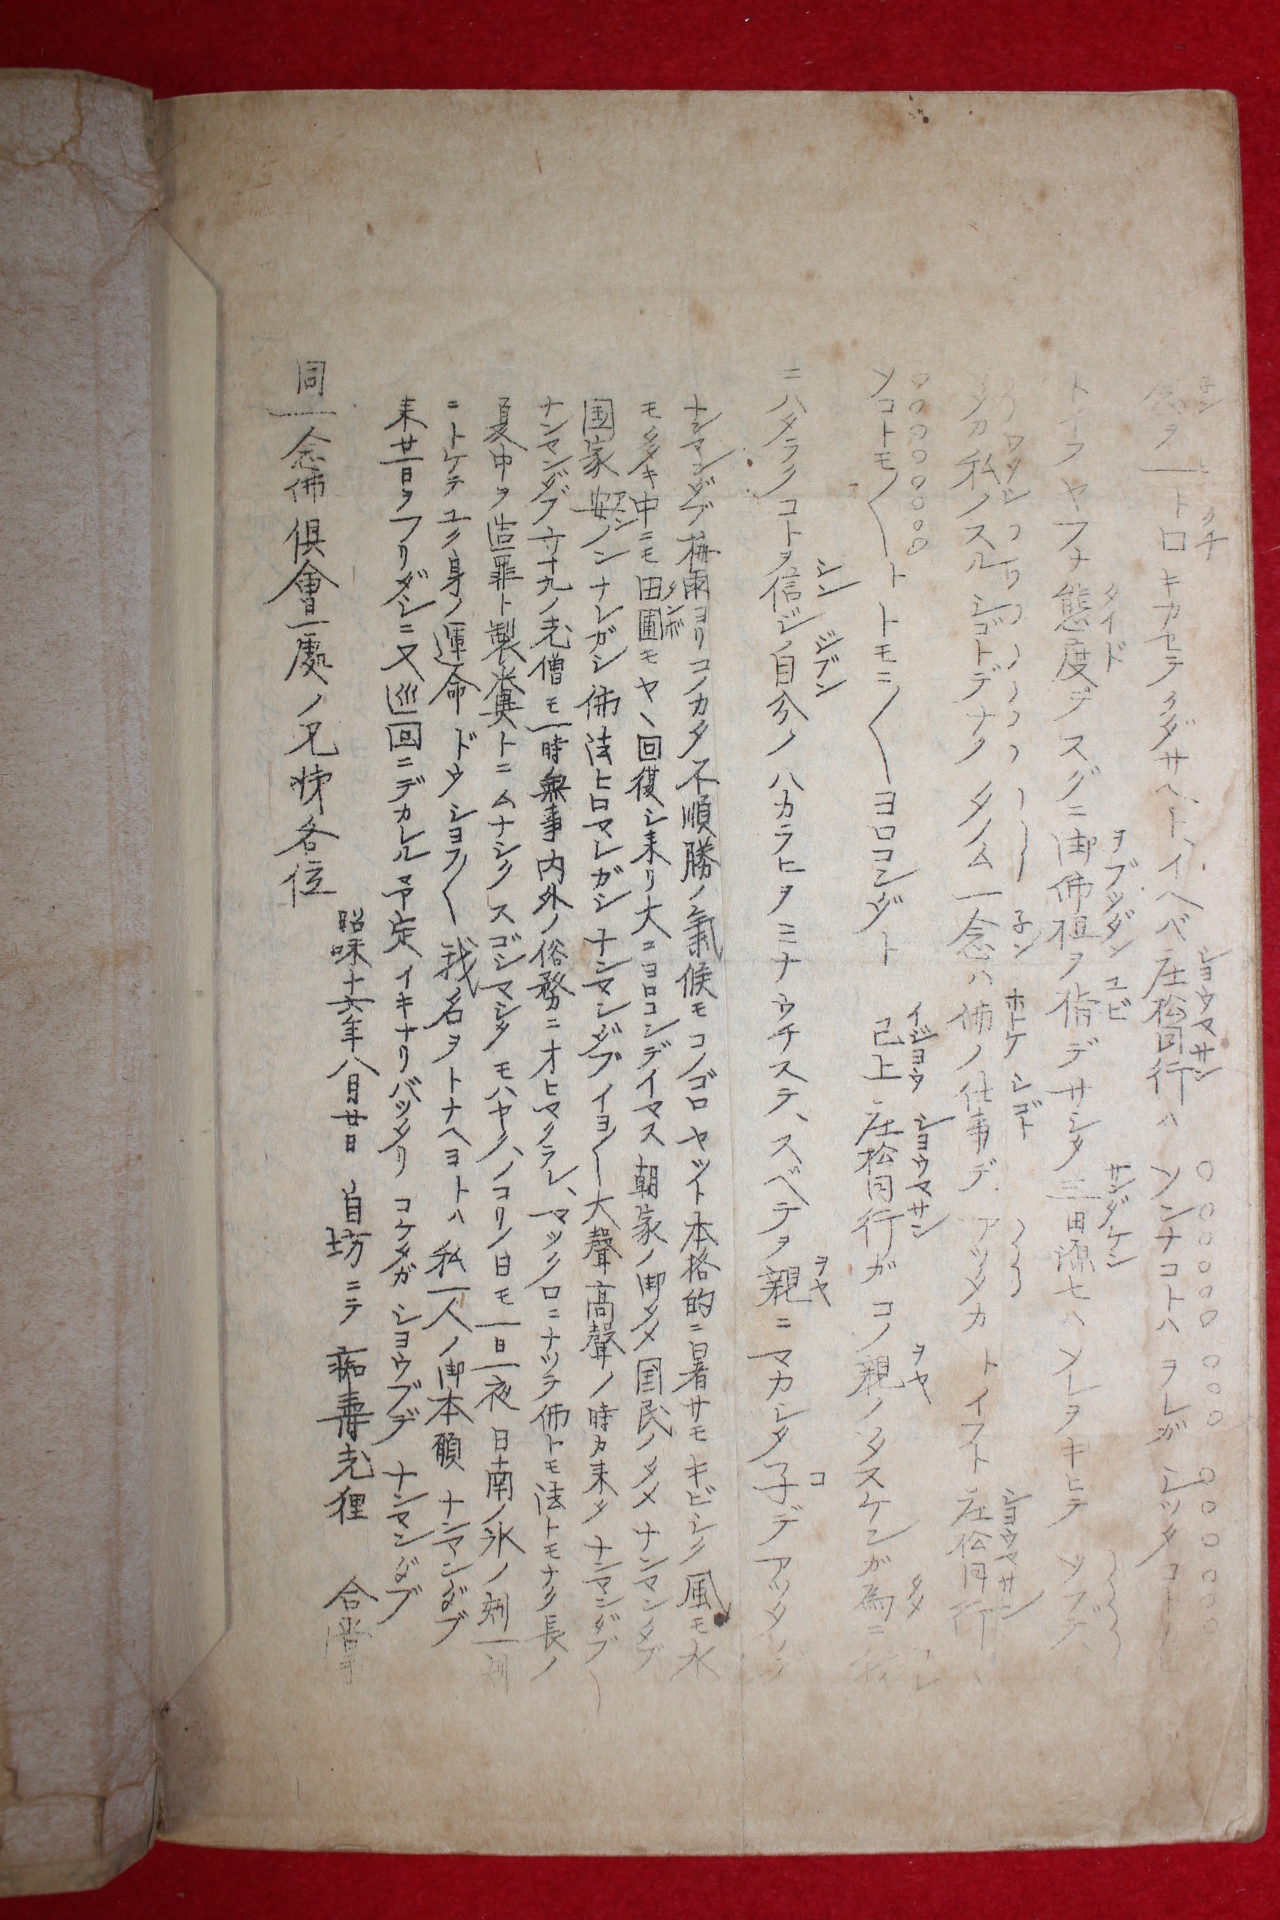 念ヲ一ト口キカセテクダサヘト、イヘバ庄松同行ハ ソンナコトハ ヲレガ シッタコト
トイフヤフナ態度デスグニ御佛壇ヲ指デサシタ 三田源七ハ ソレヲキヒテ ソブデ
タカ 私ノスルシゴトデナク タノム一念ハ 佛ノ仕事デ アツタカ トイフト 庄松同行ハ
ソコトモ〳〵ト トモニ〳〵ヨロコンダト 已上 庄松同行ガ コノ親ノタスケンガ為ニ
ニハタラクコトヲ信ジ自分ノ ハカラヒヲ ミナウチステ、スベテヲ親ニマカシタ子デアツタ
ナンマンダブ 梅雨ヨリコノカタ不順勝ノ氣候モコノゴロ ヤット本格的ニ暑サモ キビシク風モ水
モ 中ニモ田圃モヤヽ回復シ来リ大ニヨロコンデイマス 朝家ノ御タメ国民ノタメ ナンマンダブ
国家安ノンナレガシ 佛法ヒロマレガシ ナンマンダブ イヨ〳〵大聲高聲ノ時カ来タ ナンマンダブ〳〵
ナンマンダブ 六十九ノ老僧モ一時無事内外ノ俗務ニオヒマクラレ、マックロニナッテ佛トモ法トモナク長ノ
夏中ヲ造罪ト製糞トニムナシクスゴシマシタ モハヤクノコリノ日モ一日一夜 日南ノ氷ノ刻一刻
ニトケテユク身ノ運命 ドウショフ〳〵 我名ヲトナヘヨトハ 私一人ノ御本願 ナンマンダブ
来廿一日ヲフリダシニ又巡回ニデカレル予定 イキナリバッタリ コケタガ ショウブデ ナンマンダブ
昭味十六年八月廿日 自坊ニテ 痴壽老狸 合掌
同一念佛倶會一處ノ兄姉各位